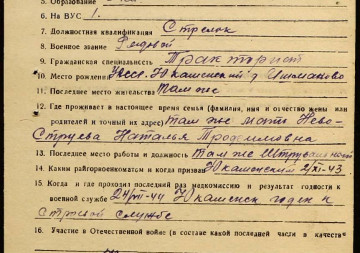 5. Образование
6. На ВУС 1.
7. Должностная квалификация Стрелок
8. Военное звание Рядовой
9. Гражданская специальность Тракторист
10. Место рождения Уасср. Юкаменский р
11. Последнее место жительства там же
12. Где проживает в настоящее время семья (фамилия, имя и отчество жены или
родителей и точный их адрес) там же мать Нево-
Струева Наталья Трофимовна
13. Последнее место работы и должность там же
14. Каким райгорвоенкоматом и когда призван Юкаменским 2/XI-43
15. Когда и где проходил последний раз медкомиссию и результат годности к
военной службе 24/VII-44 Юкаменск годен к
строевой службе
16. Участие в Отечественной войне (в составе какой последней части и в качестве